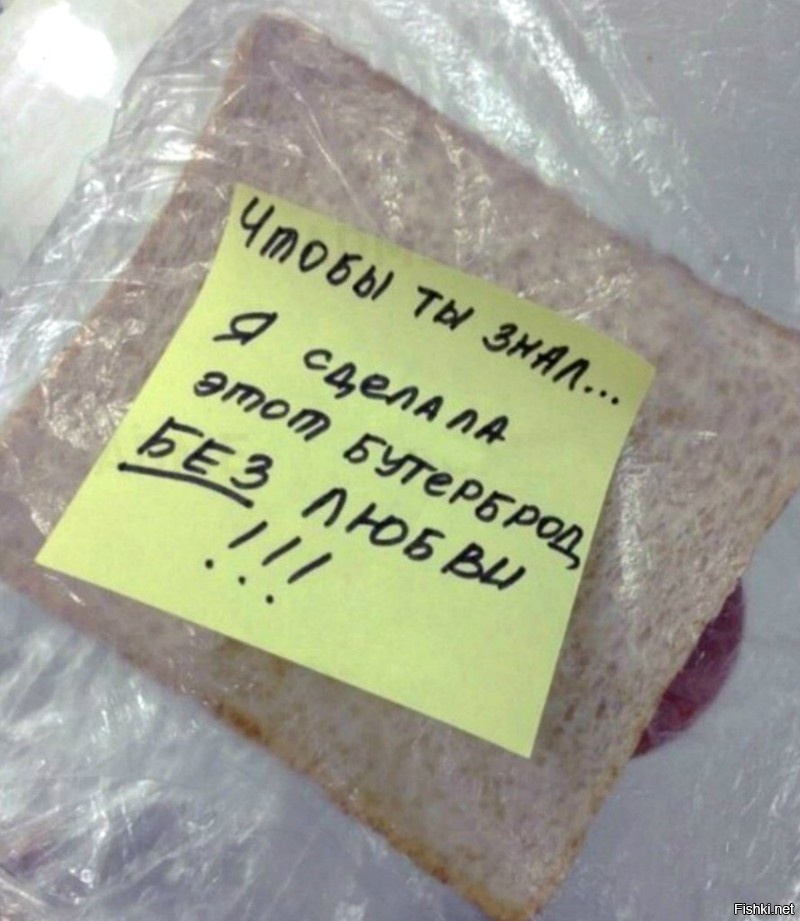 Чтобы ты знал...
Я сделала
этот бутерброд
БЕЗ любви
!!!
Fishki.net